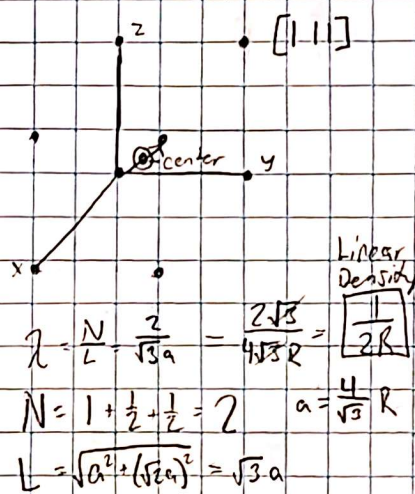 z
[1 1 1]
center
y
x
Linear
Density
λ = N/L = 2/√3a = 2√3/4√3R = 1/2R
N = 1 + 1/2 + 1/2 = 2
a = 4/√3 R
L = √a² + (√2a)² = √3·a